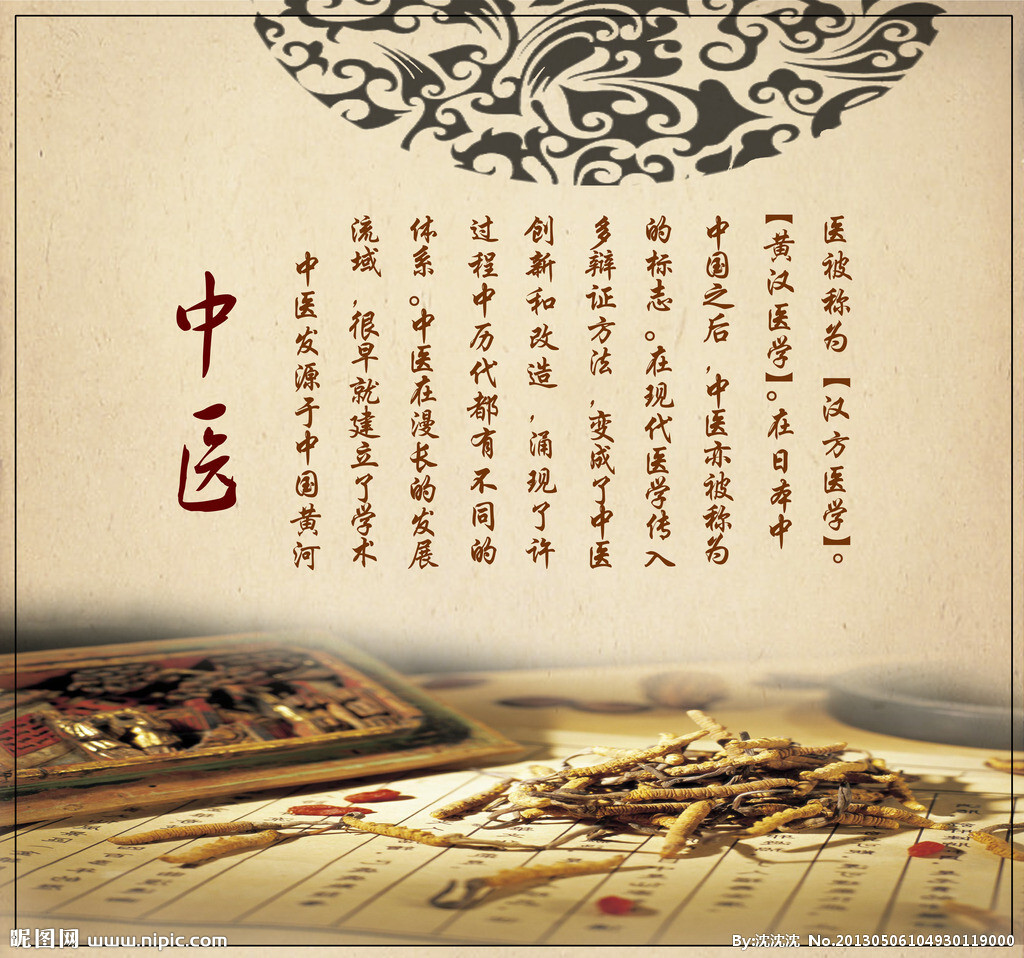 中医
中医发源于中国黄河
流域,很早就建立了学术
体系。中医在漫长的发展
过程中历代都有不同的
创新和改造,涌现了许
多辩证方法,变成了中医
的标志。在现代医学传入
中国之后,中医亦被称为
【黄汉医学】。在日本中
医被称为【汉方医学】。
昵图网 www.nipic.com
By:沈沈沈 No.20130506104930119000